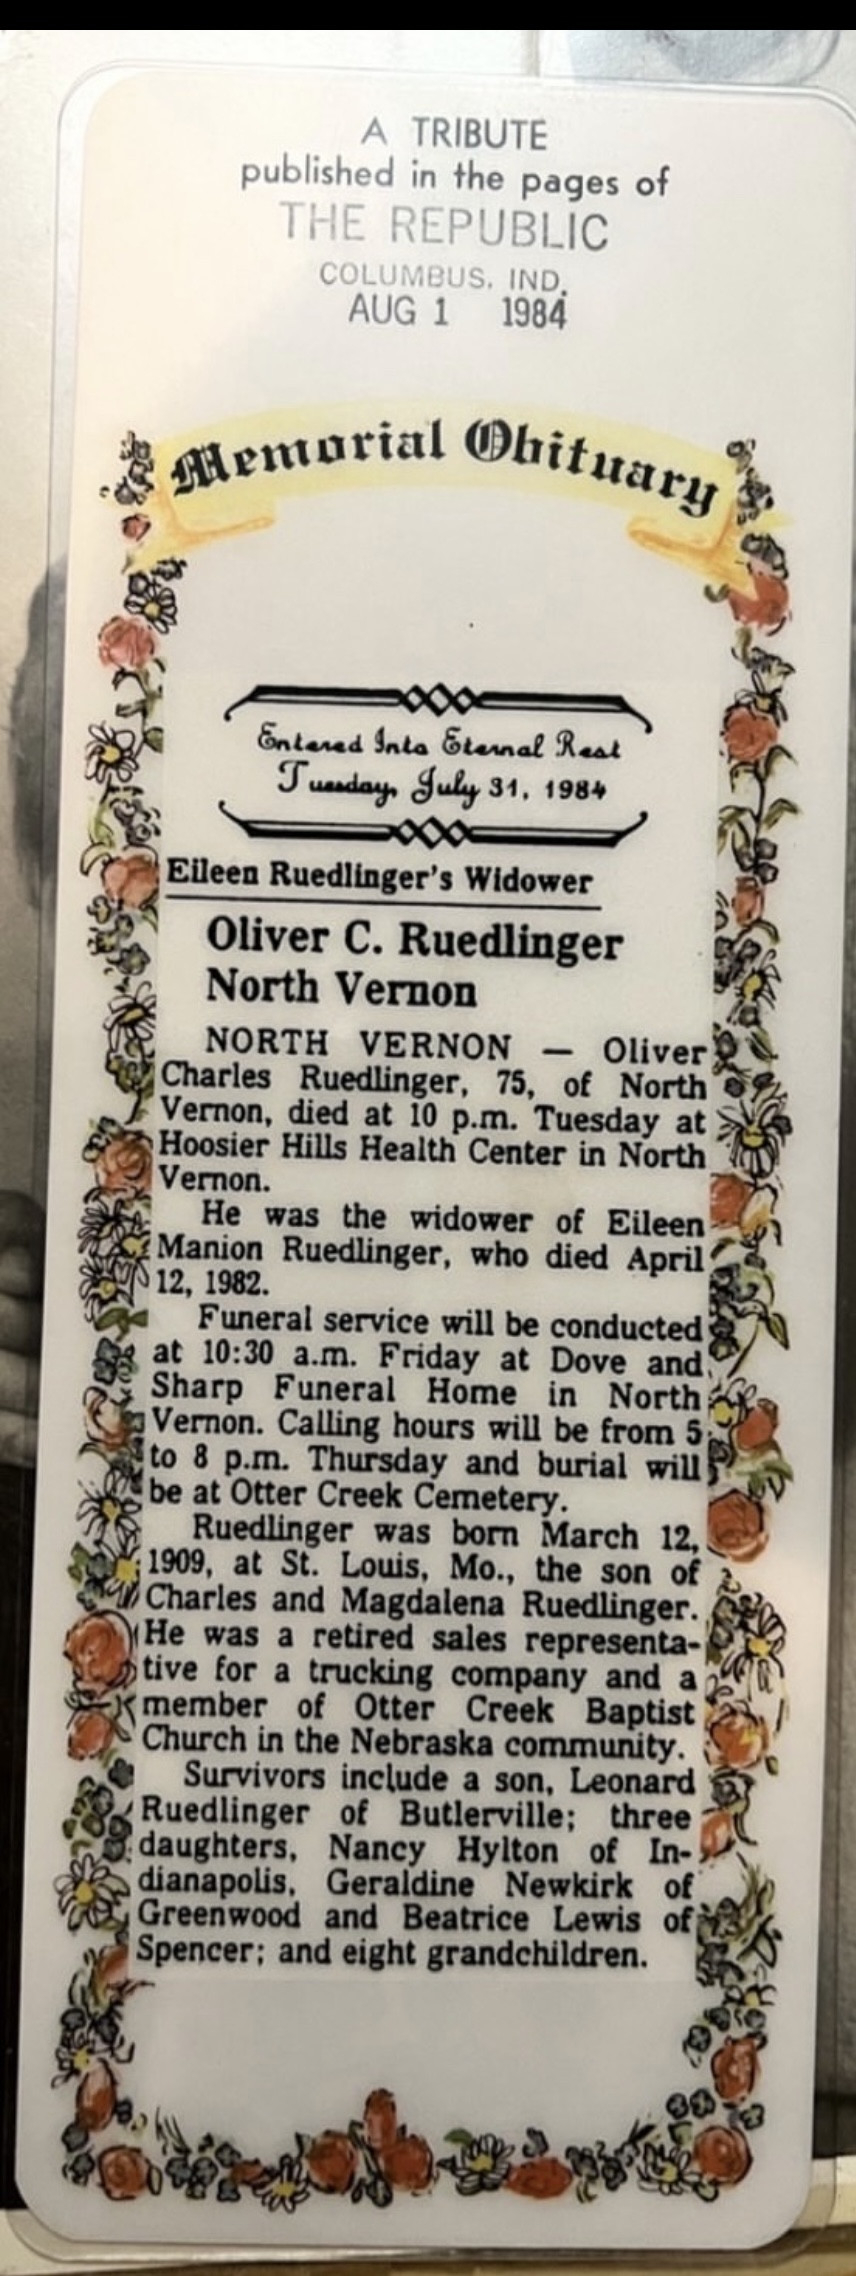 A TRIBUTE
published in the pages of
THE REPUBLIC
COLUMBUS, IND.
AUG 1 1984
Memorial Obituary
Entered Into Eternal Rest
Tuesday, July 31, 1984
Eileen Ruedlinger's Widower
Oliver C. Ruedlinger
North Vernon
NORTH VERNON — Oliver
Charles Ruedlinger, 75, of North
Vernon, died at 10 p.m. Tuesday at
Hoosier Hills Health Center in North
Vernon.
He was the widower of Eileen
Manion Ruedlinger, who died April
12, 1982.
Funeral service will be conducted
at 10:30 a.m. Friday at Dove and
Sharp Funeral Home in North
Vernon. Calling hours will be from 5
to 8 p.m. Thursday and burial will
be at Otter Creek Cemetery.
Ruedlinger was born March 12,
1909, at St. Louis, Mo., the son of
Charles and Magdalena Ruedlinger.
He was a retired sales representa-
tive for a trucking company and a
member of Otter Creek Baptist
Church in the Nebraska community.
Survivors include a son, Leonard
Ruedlinger of Butlerville; three
daughters, Nancy Hylton of In-
dianapolis, Geraldine Newkirk of
Greenwood and Beatrice Lewis of
Spencer; and eight grandchildren.